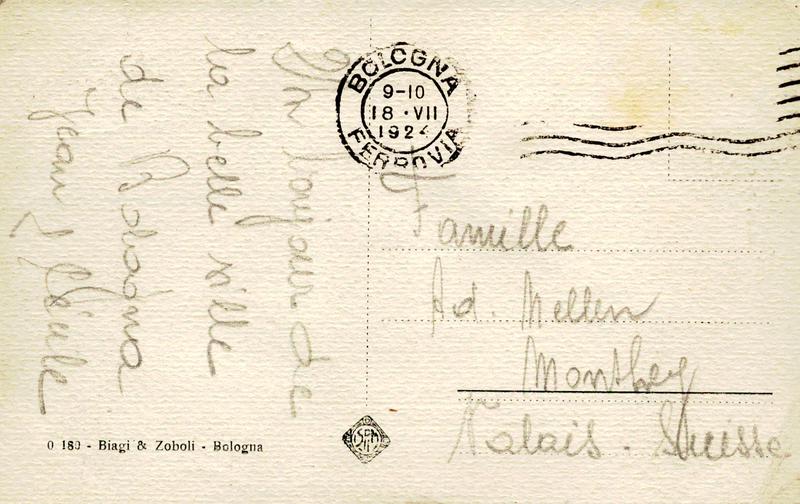 BOLOGNA
9-10
18 · VII
1924
FERROVIA
Un bonjour de
la belle ville
de Bologna
Jean
Famille
Ad. Mellen
Monthey
Valais - Suisse
0 180 - Biagi & Zoboli - Bologna